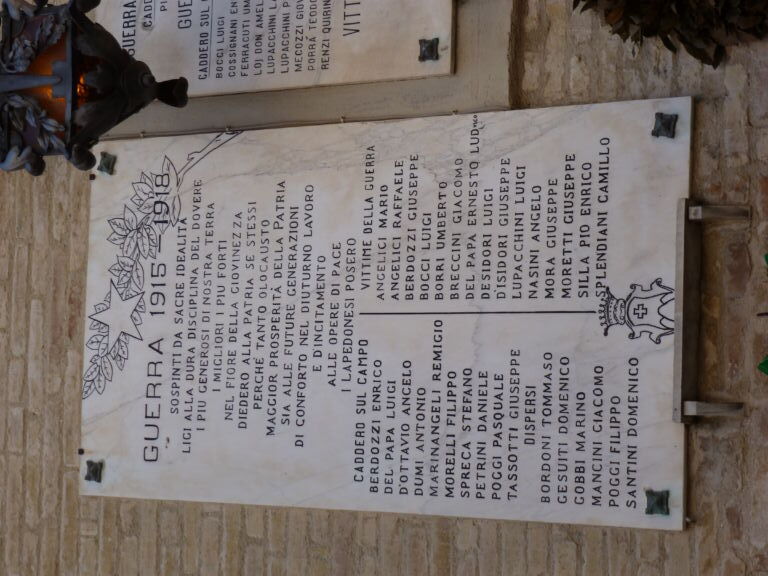 GUERRA 1915 - 1918
SOSPINTI DA SACRE IDEALITÀ
LIGI ALLA DURA DISCIPLINA DEL DOVERE
I PIU GENEROSI DI NOSTRA TERRA
I MIGLIORI I PIU FORTI
NEL FIORE DELLA GIOVINEZZA
DIEDERO ALLA PATRIA SE STESSI
PERCHÉ TANTO OLOCAUSTO
MAGGIOR PROSPERITÀ DELLA PATRIA
SIA ALLE FUTURE GENERAZIONI
DI CONFORTO NEL DIUTURNO LAVORO
E D'INCITAMENTO
ALLE OPERE DI PACE
I LAPEDONESI POSERO
CADDERO SUL CAMPO
BERDOZZI ENRICO
DEL PAPA LUIGI
D'OTTAVIO ANGELO
DUMI ANTONIO
MARINANGELI REMIGIO
MORELLI FILIPPO
SPRECA STEFANO
PETRINI DANIELE
POGGI PASQUALE
TASSOTTI GIUSEPPE
DISPERSI
BORDONI TOMMASO
GESUITI DOMENICO
GOBBI MARINO
MANCINI GIACOMO
POGGI FILIPPO
SANTINI DOMENICO
VITTIME DELLA GUERRA
ANGELICI MARIO
ANGELICI RAFFAELE
BERDOZZI GIUSEPPE
BOCCI LUIGI
BORRI UMBERTO
BRECCINI GIACOMO
DEL PAPA ERNESTO LUDVICO
DESIDORI LUIGI
D'ISIDORI GIUSEPPE
LUPACCHINI LUIGI
NASINI ANGELO
MORA GIUSEPPE
MORETTI GIUSEPPE
SILLA PIO ENRICO
SPLENDIANI CAMILLO
GUERRA
CADDERO
GUE
CADDERO SUL
BOCCI LUIGI
COSSIGNANI
FERRACUTI
LOJ DON
LUPACCHINI
LUPACCHINI
MECOZZI
PORRÀ
RENZI
VITT